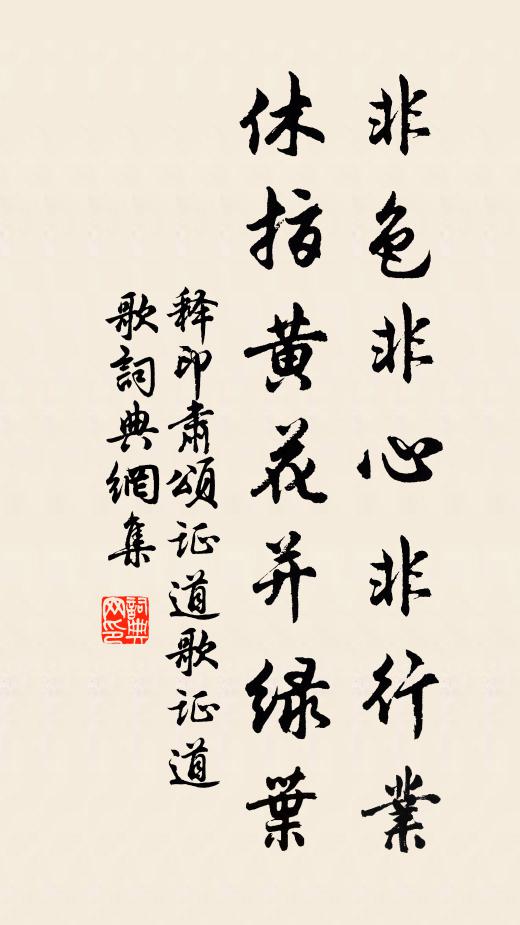 非色非心非行業
休指黄花并緑葉
释印肃頌证道歌证道
歌詞典網集
詞典
网印